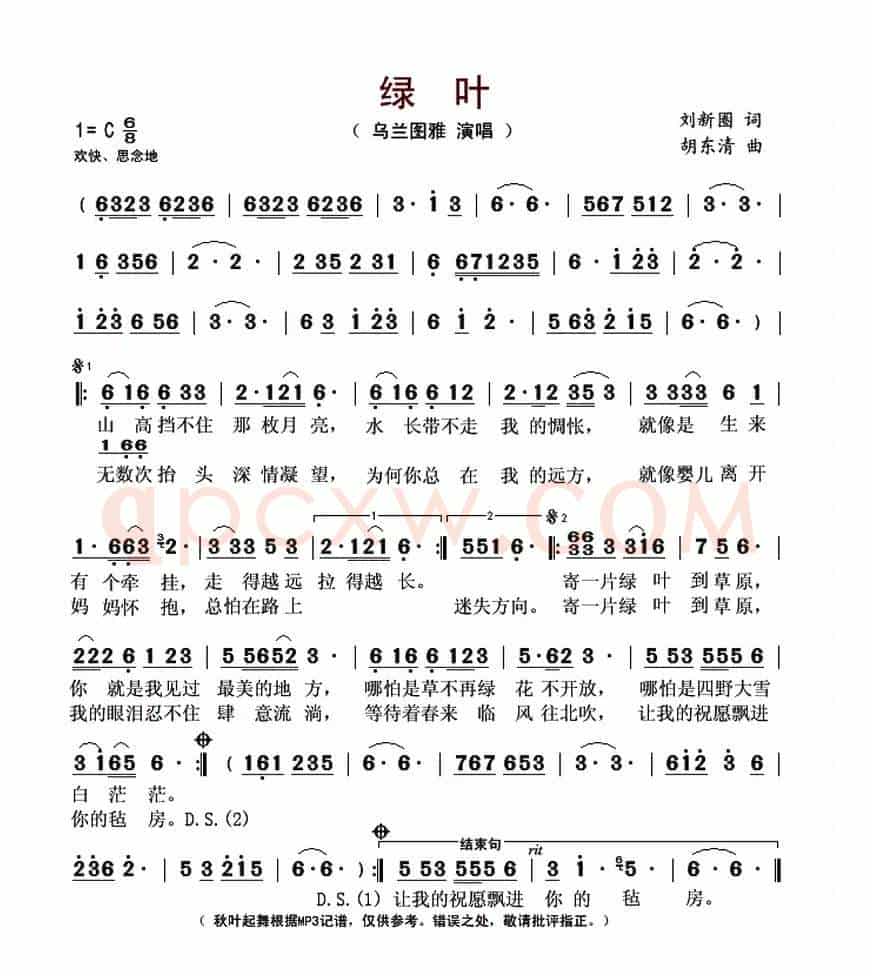 绿 叶
1= C 6/8
（ 乌兰图雅 演唱 ）
刘新圈 词
胡东清 曲
欢快、思念地
( 6323 6236 | 6323 6236 | 3· i 3 | 6· 6· | 567 512 | 3· 3· |
1 6 356 | 2· 2· | 2 35 2 31 | 6 671235 | 6· i 23 | 2· 2· |
i 23 6 56 | 3· 3· | 6 3 i 23 | 6 i 2· | 5 63 2 i5 | 6· 6· ) |
𝄋 1
‖: 6 16 6 33 | 2·121 6· | 6 16 6 12 | 2·12 35 3 | 3 333 6 1 |
山 高挡不住 那 枚月 亮， 水 长带不走 我 的惆怅， 就像是 生 来
1 66
无数次抬 头 深 情凝 望， 为何你总 在 我 的远方， 就像婴儿 离 开
qpcxw.COM
1 2 𝄋 2
1· 663 3 2· | 3 333 5 3 | 2·121 6· :‖ 551 6· :‖: 66 33 3 3i6 | 7 5 6· |
有 个牵 挂， 走 得越 远 拉 得越 长。 寄一片绿 叶 到草原，
妈 妈怀 抱， 总怕在路 上 迷失方向。 寄一片绿 叶 到草原，
222 6 1 23 | 5 5652 3 · | 6 16 6 123 | 5·62 3 · | 5 53 555 6 |
你 就是我见过 最美的地 方， 哪怕是草不再绿 花 不开放， 哪怕是四野大雪
我的眼泪忍不住 肆 意流 淌， 等待着春来 临 风 往北吹， 让我的祝愿飘进
3 i65 6 · :‖ ( 161 235 | 6· 6· | 767 653 | 3· 3· | 6i2 3 6 |
白 茫茫。
你的毡 房。D.S.(2)
结束句 rit
236 2· | 5 3 2i5 | 6· 6· ) :‖ 5 53 555 6 | 3 i· | 6 5· | 6· 6· ‖
D.S.(1) 让我的祝愿飘进 你 的 毡 房。
（ 秋叶起舞根据MP3记谱，仅供参考。错误之处，敬请批评指正。）